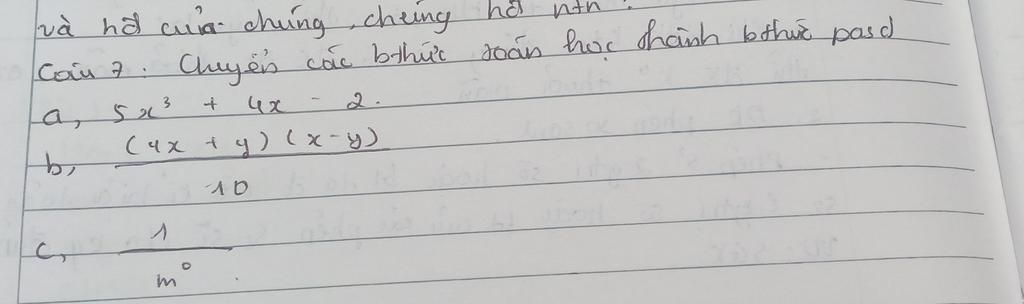 và hđ của chúng, chúng hđ ntn.
Câu 7. Chuyển các bthức toán học thành bthức pascl
a, 5x³ + 4x - 2.
b, (4x + y) (x - y)
10
c, 1
m⁰.